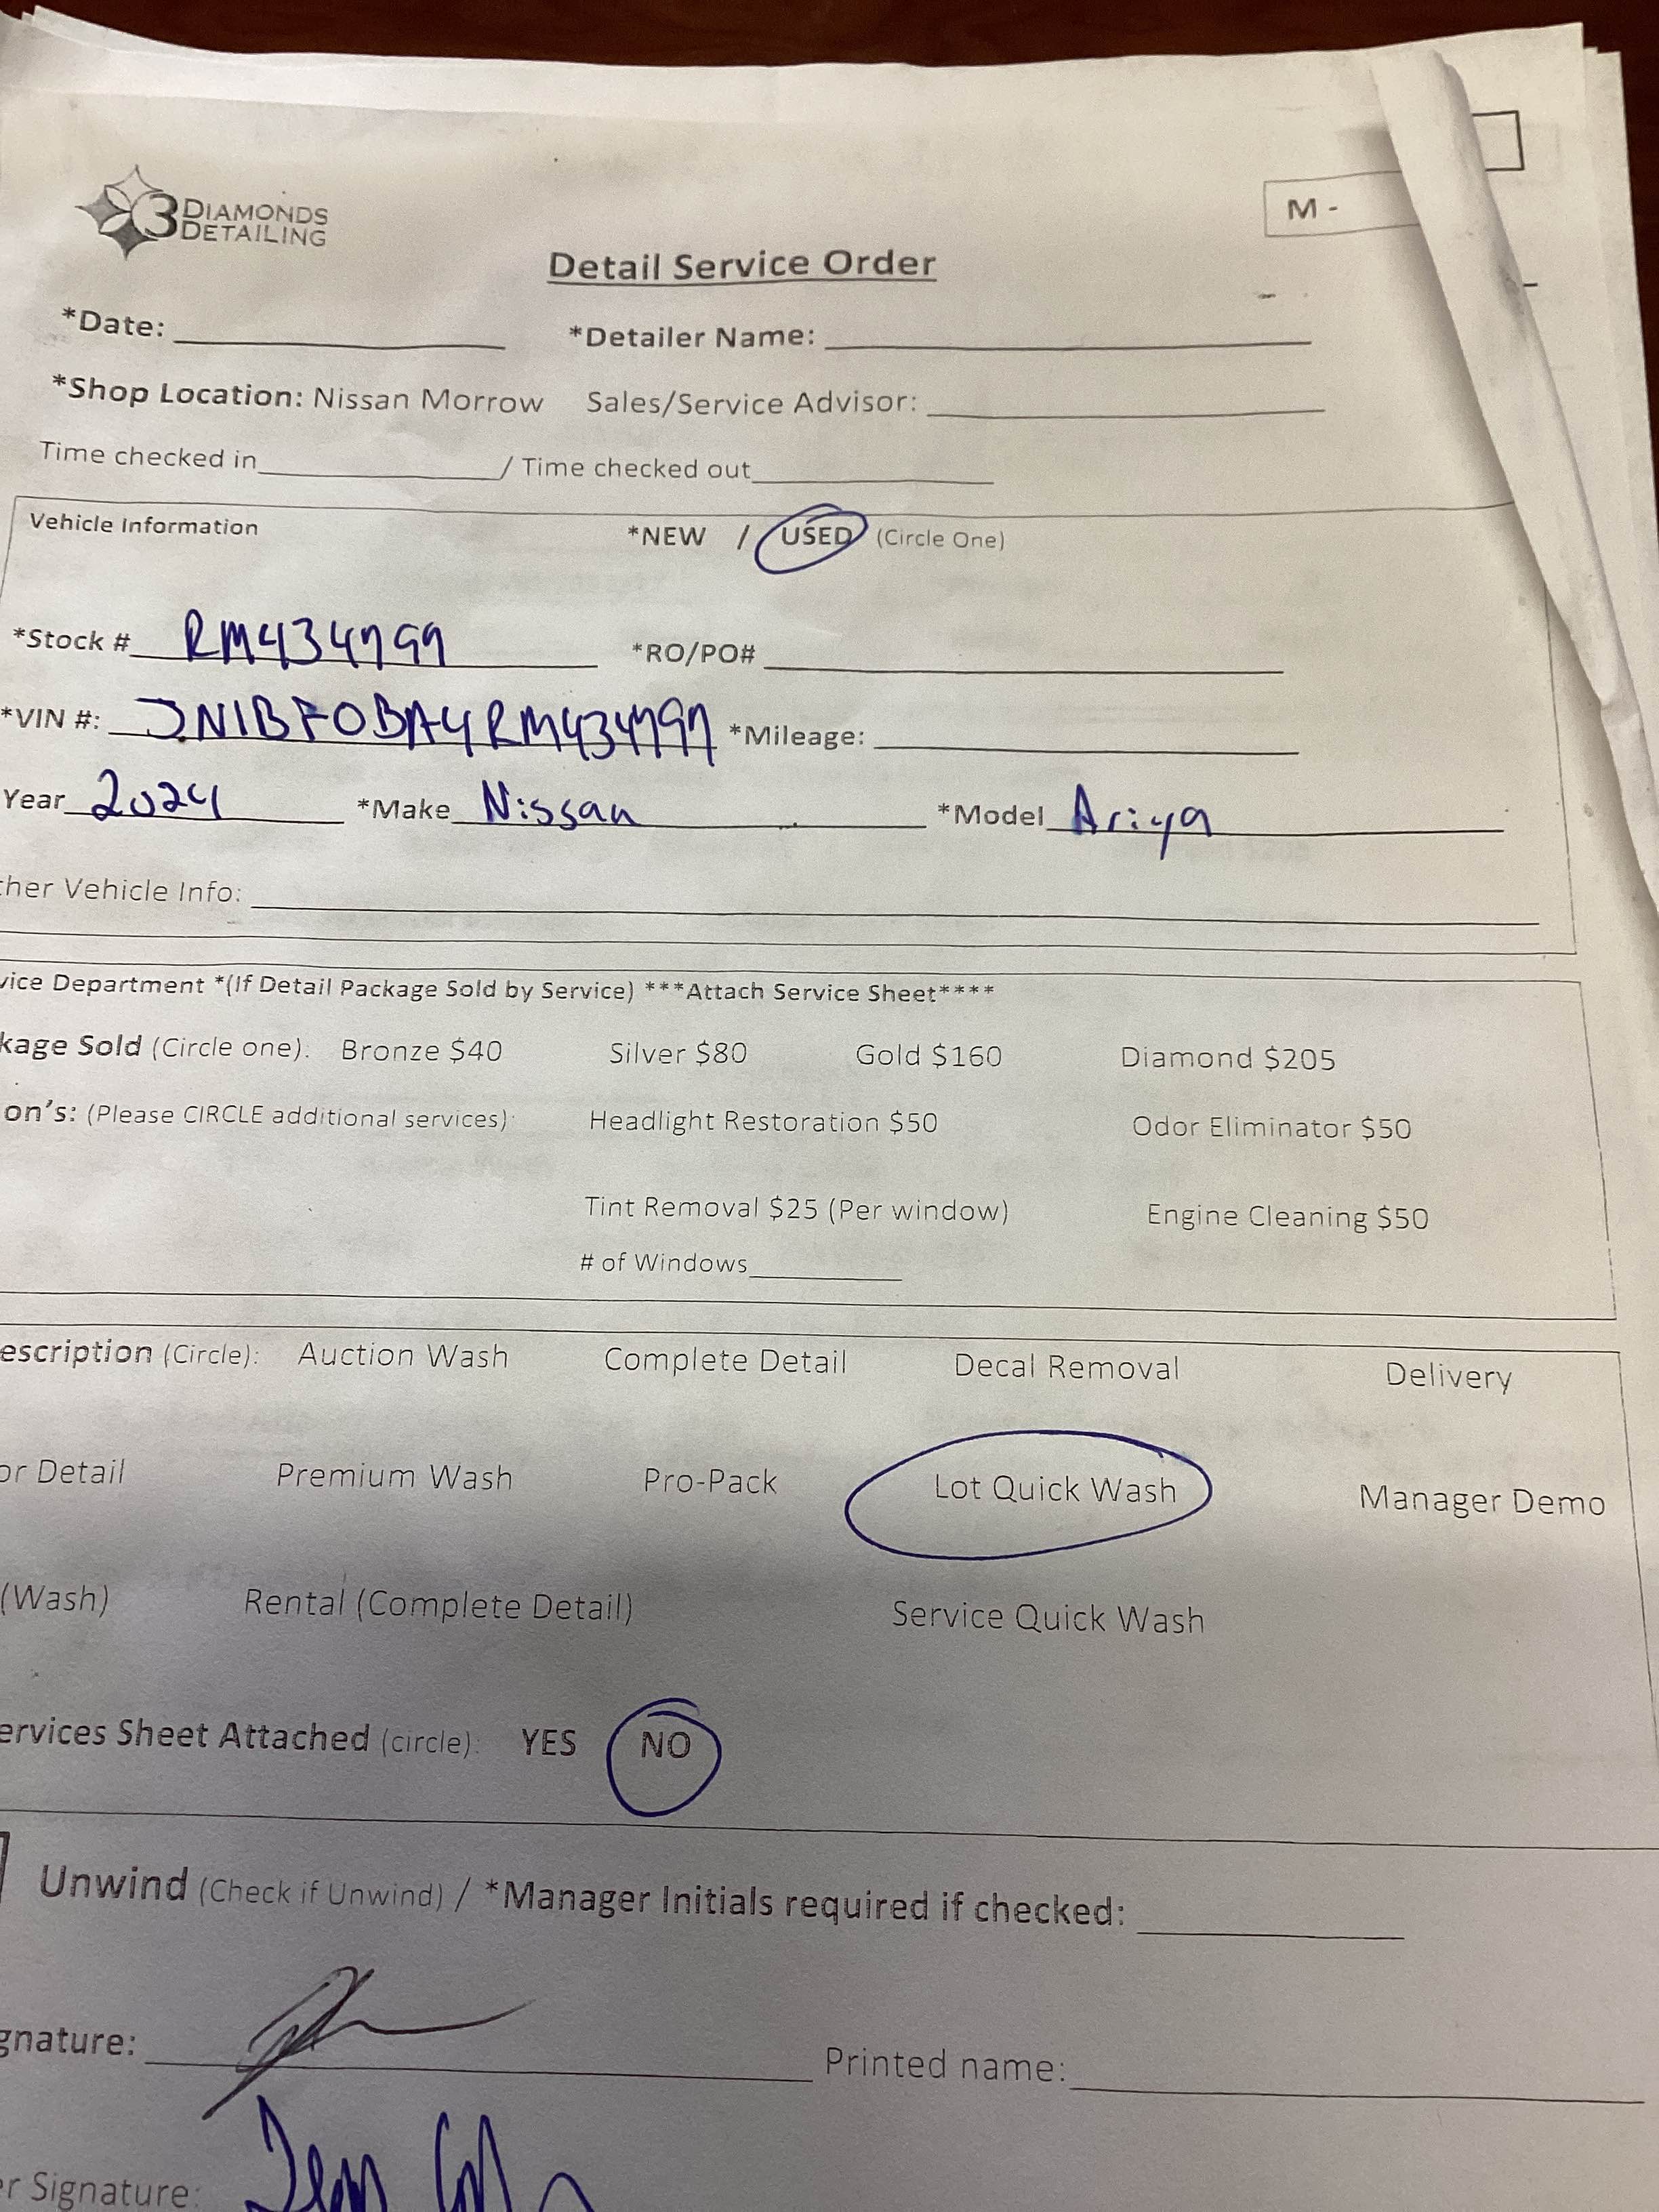 3 DIAMONDS
DETAILING
M -
Detail Service Order
*Date: *Detailer Name:
*Shop Location: Nissan Morrow Sales/Service Advisor:
Time checked in / Time checked out
Vehicle Information *NEW / USED (Circle One)
*Stock # RM434799 *RO/PO#
*VIN #: JN1BF0BA4RM434797 *Mileage:
Year 2024 *Make Nissan *Model Ariya
ther Vehicle Info:
vice Department *(If Detail Package Sold by Service) ***Attach Service Sheet****
kage Sold (Circle one): Bronze $40 Silver $80 Gold $160 Diamond $205
on's: (Please CIRCLE additional services): Headlight Restoration $50 Odor Eliminator $50
Tint Removal $25 (Per window) Engine Cleaning $50
# of Windows
escription (Circle): Auction Wash Complete Detail Decal Removal Delivery
or Detail Premium Wash Pro-Pack Lot Quick Wash Manager Demo
(Wash) Rental (Complete Detail) Service Quick Wash
ervices Sheet Attached (circle): YES NO
Unwind (Check if Unwind) / *Manager Initials required if checked:
gnature: Printed name:
er Signature: